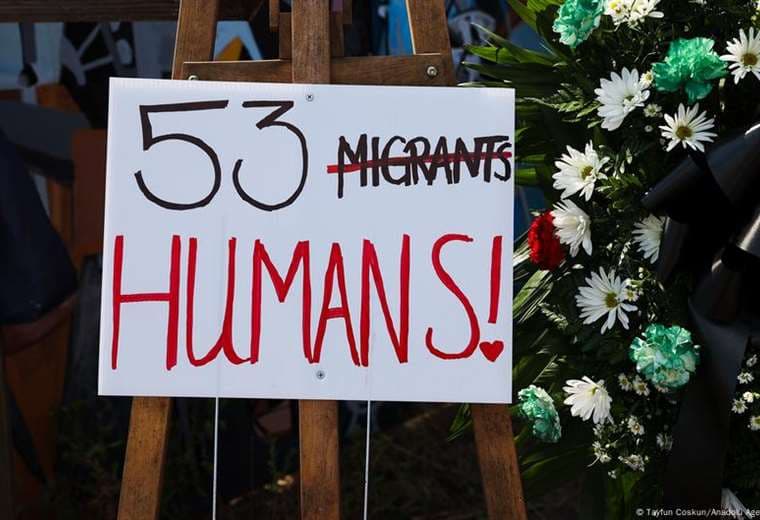 53 MIGRANTS
HUMANS!
© Tayfun Coskun/Anadolu Age